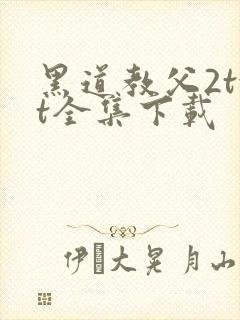 黑道教父2t
t全集下载
伊大晃月山